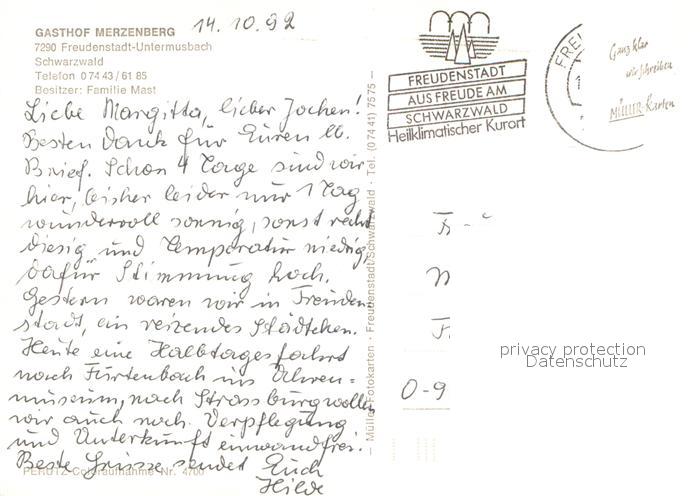 GASTHOF MERZENBERG
14.10.92
7290 Freudenstadt-Untermusbach
Schwarzwald
Telefon 07443/61 85
Besitzer: Familie Mast
Liebe Margitta, lieber Jochen!
Besten Dank für Euren lb.
Brief. Schon 4 Tage sind wir
hier, bisher leider nur 1 Tag
wundervoll sonnig, sonst recht
diesig und Temperatur niedrig,
dafür Stimmung hoch.
Gestern waren wir in Freuden-
stadt, ein reizendes Städtchen.
Heute eine Halbtagesfahrt
nach Furtenbach ins Uhren-
museum, nach Strassburg wollen
wir auch noch. Verpflegung
und Unterkunft einwandfrei.
Beste Grüsse sendet Euch
Hilde
PERUTZ-Coloraufnahme Nr. 4700
Müller-Fotokarten · Freudenstadt/Schwarzwald · Tel. (07441) 7575
FREUDENSTADT
AUS FREUDE AM
SCHWARZWALD
Heilklimatischer Kurort
FRE
1
Ganz klar
wir schreiben
MÜLLER-Karten
F
M
F.
O-9
privacy protection
Datenschutz